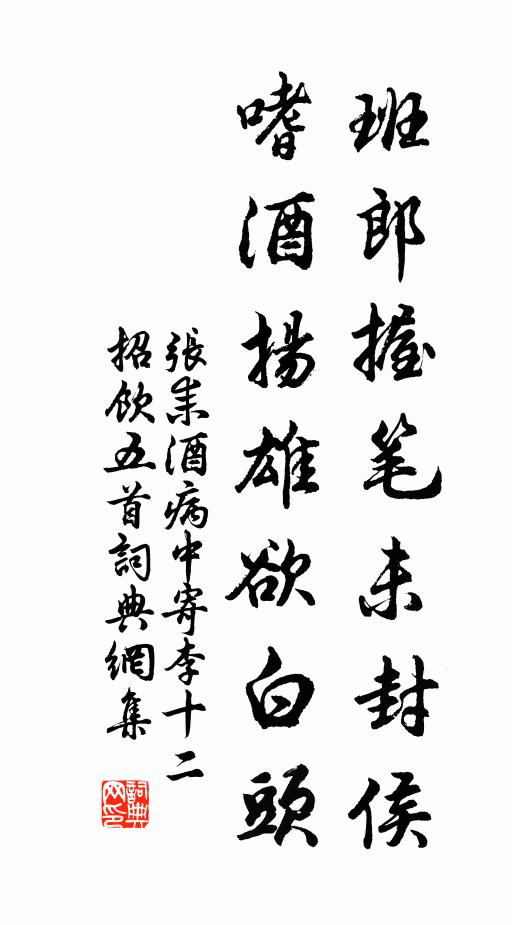 班郎握笔未封侯
嗜酒揚雄欲白頭
張耒酒病中寄李十二
招飲五首詞典網集
詞典
网印